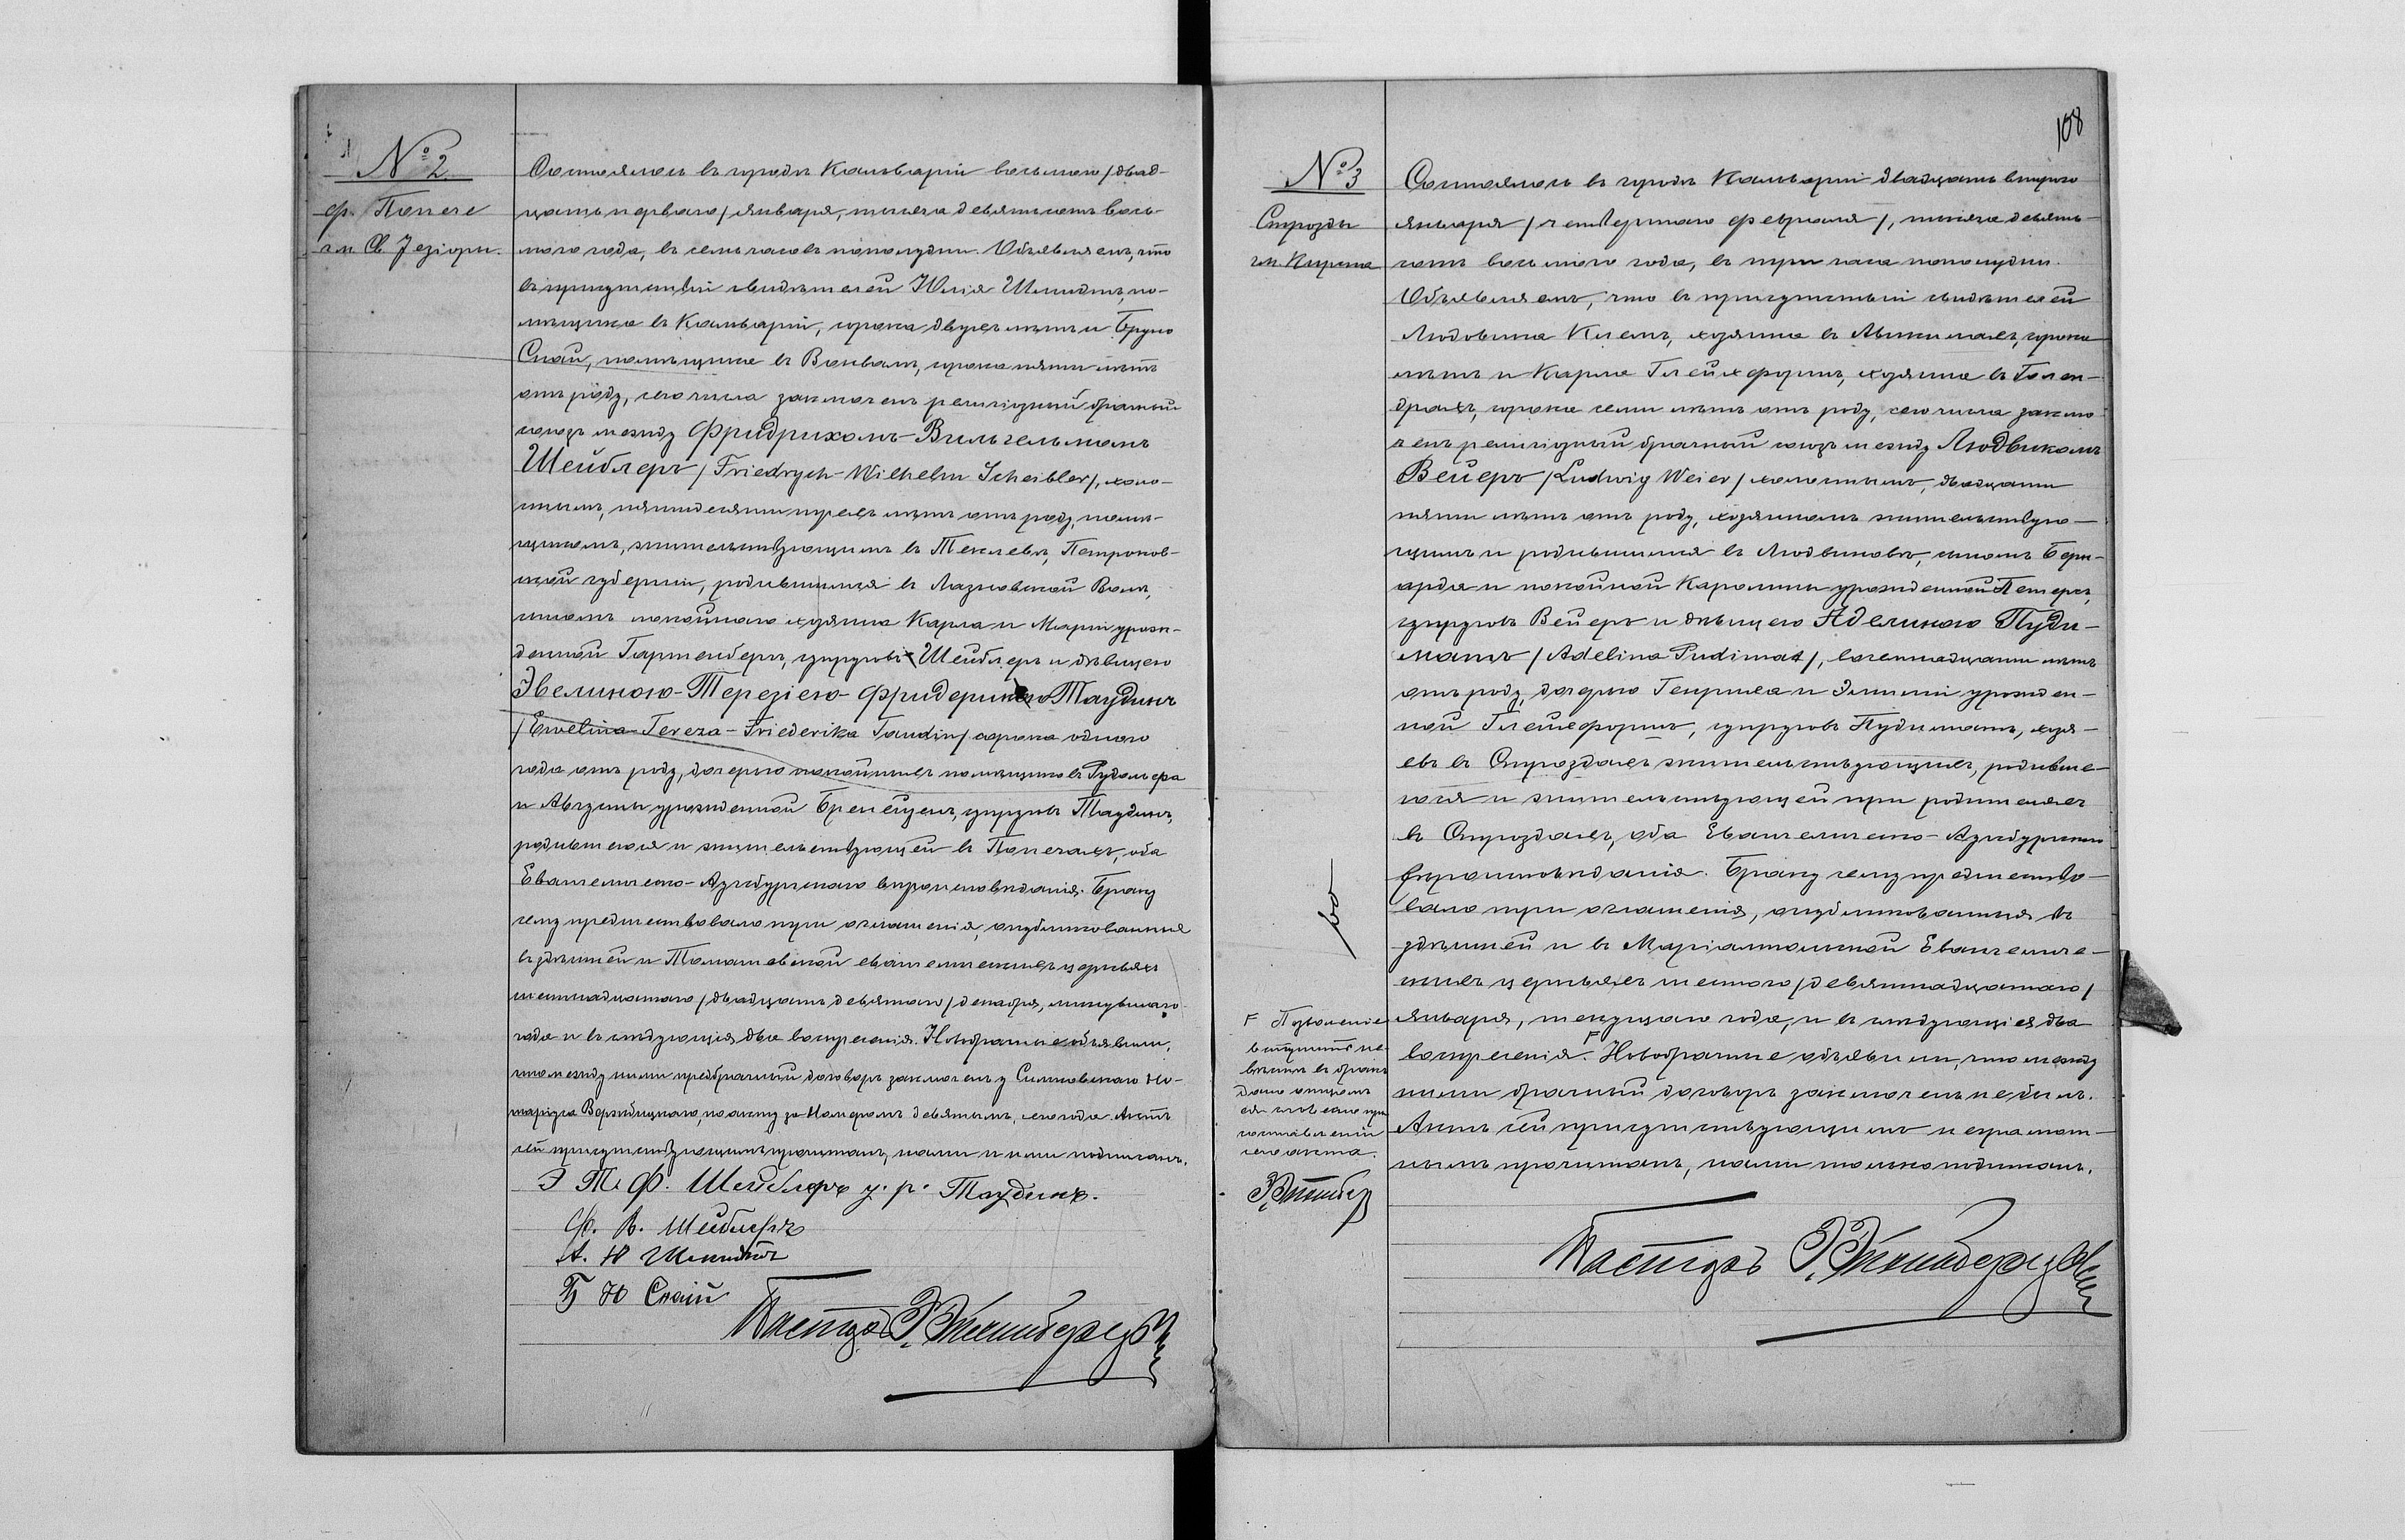 № 2
ф. Попече
гм. Св. Језіоры.
Состоялось въ городѣ Кальваріи восьмого /двад-
цать перваго/ января, тысяча девятьсотъ вось-
мого года, въ семь часовъ пополудни. Объявляемъ, что
въ присутствіи свидѣтелей Юлія Шмидтъ, по-
мѣщика въ Кальваріи, сорока двухъ лѣтъ и Бруно
Снай, помѣщика въ , сорока пяти лѣтъ
отъ роду, сего числа заключенъ религіозный брачный
союзъ между Фридрихомъ-Вильгельмомъ
Шейблеръ /Friedrych-Wilhelm Scheibler/, холо-
стымъ, пятидесяти трехъ лѣтъ отъ роду, помѣ-
щикомъ, жительствующимъ въ , Петроков-
ской губерніи, родившимся въ Лазновской Волѣ,
сыномъ покойнаго хозяина Карла и Маріи урож-
денной Гартенберъ, супруговъ Шейблеръ и дѣвицею
Эвелиною-Терезіею-Фридерикою Таудинъ
/Ewelina-Tereza-Friederika Taudin/ сорока одного
года отъ роду, дочерью покойныхъ помѣщиковъ Рудольфа
и Августы урожденной , супруговъ Таудинъ,
родившеюся и жительствующей въ Попечахъ, оба
Евангелическо-Аугсбургскаго вѣроисповѣданія. Браку
сему предшествовало три оглашенія, опубликованныя
въ здѣшней и Томашовской евангелическихъ церквахъ
шестнадцатаго /двадцать девятаго/ декабря, минувшаго
года и въ слѣдующія два воскресенія. Новобрачные объявили,
что между ними предбрачный договоръ заключенъ у Сувалкскаго Но-
таріуса , по акту за Номеромъ девятымъ, сего года. Актъ
сей присутствующимъ прочитанъ, нами и ими подписанъ.
Э Т. Ф. Шейблеръ у. р. Таудинъ.
Ф. В. Шейблеръ
А. Ю Шмидтъ
Б Ю Снай
Пасторъ
108
№ 3
Строзды
гм. Кирсна
Состоялось въ городѣ Кальваріи двадцать второго
января /четвертаго февраля/, тысяча девять-
сотъ восьмого года, въ три часа пополудни.
Объявляемъ, что въ присутствіи свидѣтелей
Людовика Клемъ, хозяина въ , сорока
лѣтъ и Карла Глейхфорстъ, хозяина въ Голен-
драхъ, сорока семи лѣтъ отъ роду, сего числа заклю-
ченъ религіозный брачный союзъ между Людвикомъ
Вейеръ /Ludwig Weier/ холостымъ, двадцати
пяти лѣтъ отъ роду, хозяиномъ жительствую-
щимъ и родившимся въ Людвиновѣ, сыномъ Берн-
арда и покойной Каролины урожденной Петеръ,
супруговъ Вейеръ и дѣвицею Аделиною Пуди-
матъ /Adelina Pudimat/, восемнадцати лѣтъ
отъ роду, дочерью Генриха и Эмиліи урожден-
ной Глейхфорстъ, супруговъ Пудиматъ, хозя-
евъ въ Строздахъ жительствующихъ, родивше-
юся и жительствующей при родителяхъ
въ Строздахъ, оба Евангелическо-Аугсбургскаго
вѣроисповѣданія. Браку сему предшество-
вало три оглашенія, опубликованныя въ
здѣшней и въ Маріампольской Евангеличе-
скихъ церквахъ шестого /девятнадцатаго/
января, текущаго года, и въ слѣдующія два
воскресенія. F Новобрачные объявили, что между
ними брачный договоръ заключенъ не былъ.
Актъ сей присутствующимъ неграмот-
нымъ прочитанъ, нами только подписанъ.
F Позволеніе
вступить не-
вѣстѣ въ бракъ
дано отцомъ
ея словесно при
составленіи
сего акта.
Пасторъ